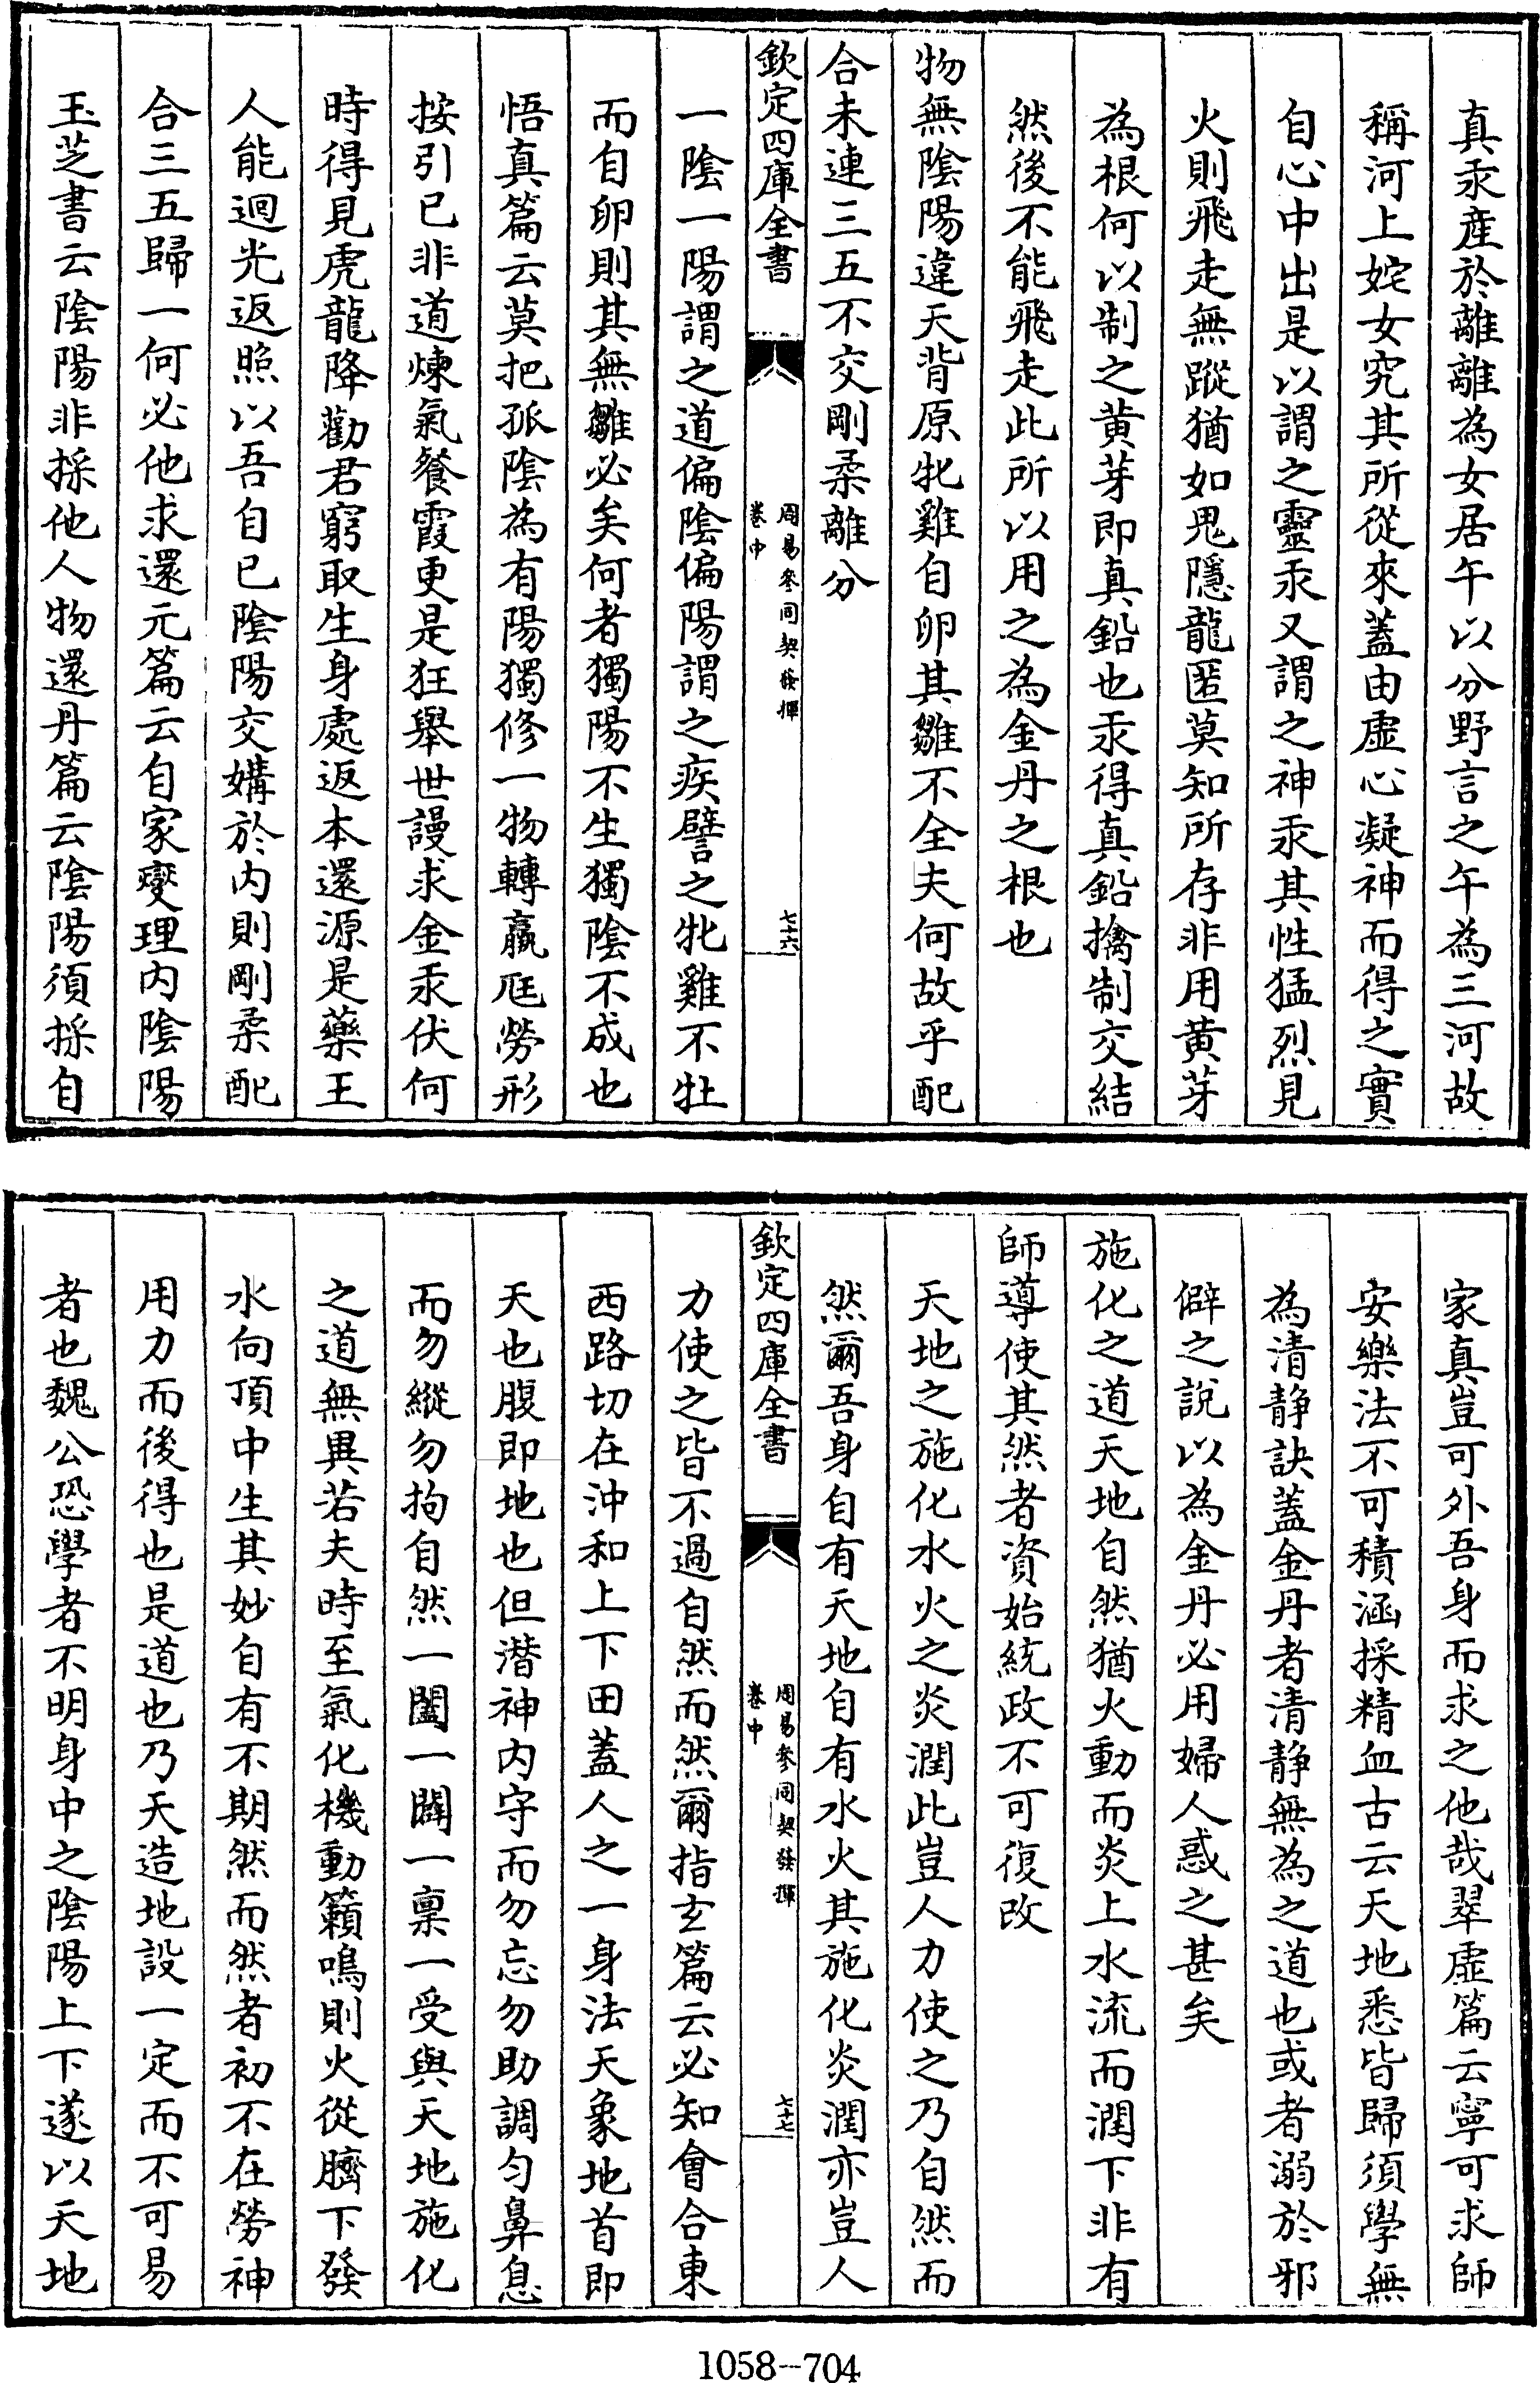 真汞産於離離為女居午以分野言之午為三河故
稱河上姹女究其所從來蓋由虛心凝神而得之實
自心中出是以謂之靈汞又謂之神汞其性猛烈見
火則飛走無蹤猶如鬼隱龍匿莫知所存非用黄芽
為根何以制之黄芽即真鉛也汞得真鉛擒制交結
然後不能飛走此所以用之為金丹之根也
物無陰陽違天背原牝雞自卵其雛不全夫何故乎配
合未連三五不交剛柔離分
欽定四庫全書
周易參同契發揮
卷中
七十六
一陰一陽謂之道偏陰偏陽謂之疾譬之牝雞不牡
而自卵則其無雛必矣何者獨陽不生獨陰不成也
悟真篇云莫把孤陰為有陽獨修一物轉羸尫勞形
按引已非道煉氣餐霞更是狂舉世謾求金汞伏何
時得見虎龍降勸君窮取生身處返本還源是藥王
人能迴光返照以吾自已陰陽交媾於内則剛柔配
合三五歸一何必他求還元篇云自家燮理内陰陽
玉芝書云陰陽非採他人物還丹篇云陰陽須採自
家真豈可外吾身而求之他哉翠虛篇云寧可求師
安樂法不可積涵採精血古云天地悉皆歸須學無
為清静訣蓋金丹者清静無為之道也或者溺於邪
僻之說以為金丹必用婦人惑之甚矣
施化之道天地自然猶火動而炎上水流而潤下非有
師導使其然者資始統政不可復改
天地之施化水火之炎潤此豈人力使之乃自然而
然爾吾身自有天地自有水火其施化炎潤亦豈人
欽定四庫全書
周易參同契發揮
卷中
七十七
力使之皆不過自然而然爾指玄篇云必知會合東
西路切在沖和上下田蓋人之一身法天象地首即
天也腹即地也但潛神内守而勿忘勿助調匀鼻息
而勿縱勿拘自然一闔一闢一禀一受與天地施化
之道無異若夫時至氣化機動籟鳴則火從臍下發
水向頂中生其妙自有不期然而然者初不在勞神
用力而後得也是道也乃天造地設一定而不可易
者也魏公恐學者不明身中之陰陽上下遂以天地
1058--704